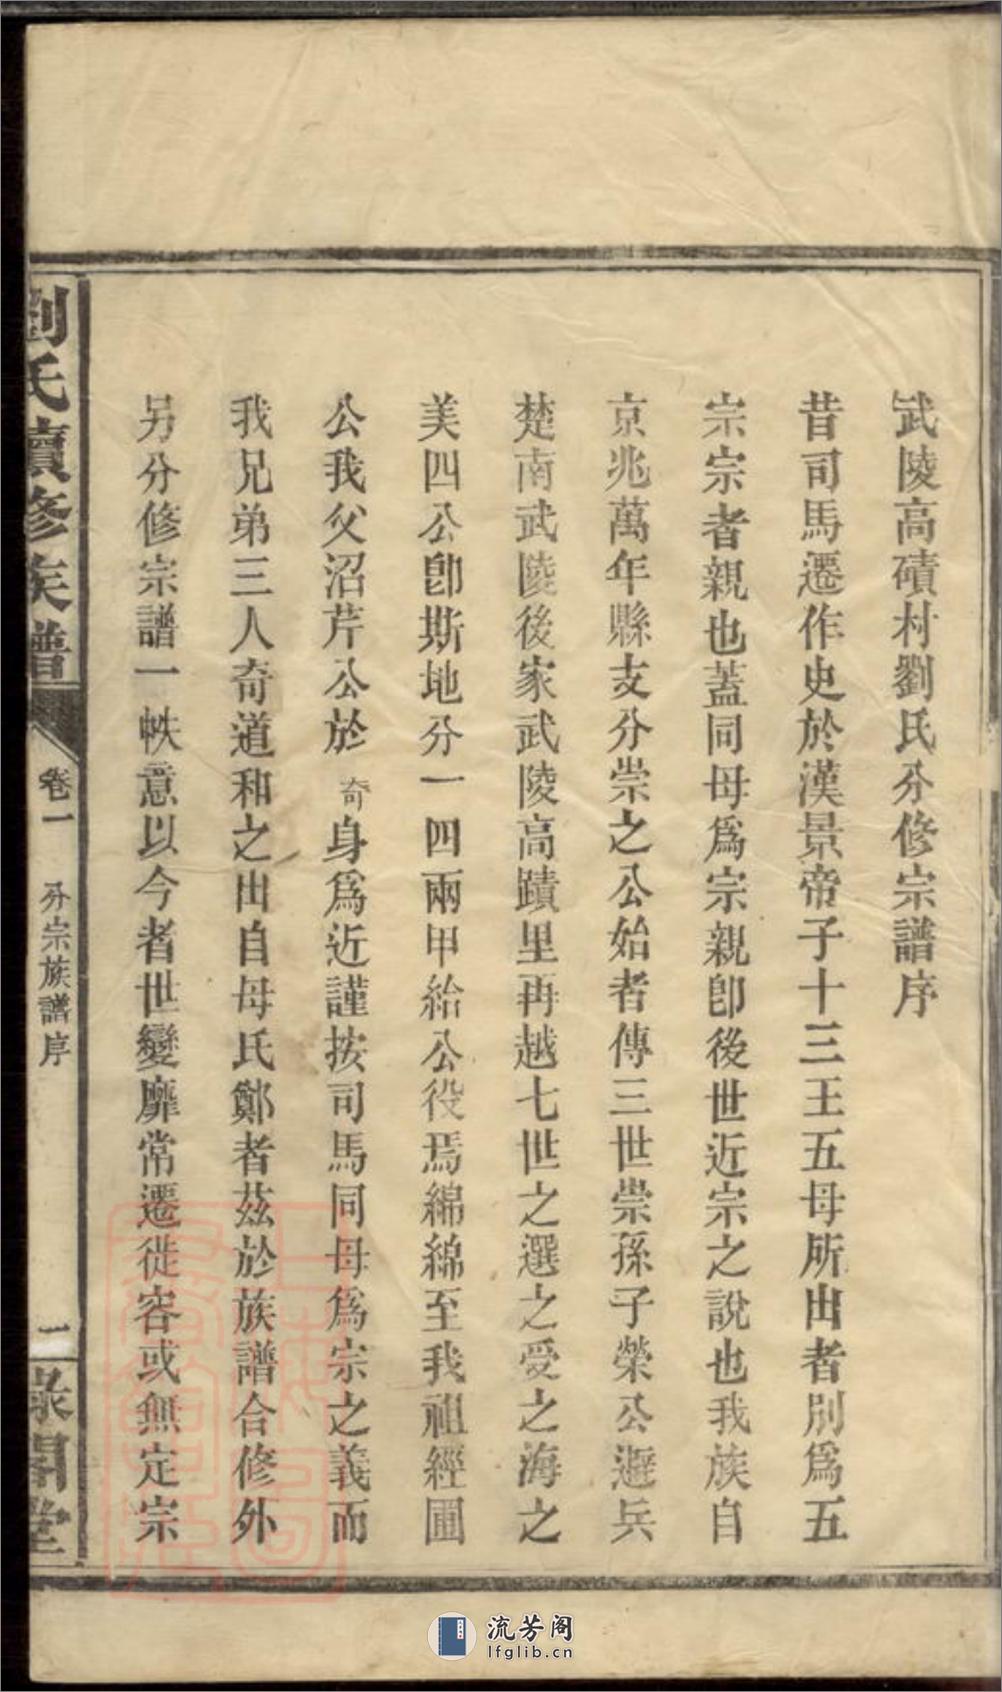 武陵高磧村劉氏分修宗譜序
昔司馬遷作史於漢景帝子十三王五母所出者別爲五
宗宗者親也蓋同母爲宗親卽後世近宗之說也我族自
京兆萬年縣支分崇之公始者傳三世崇孫子榮公避兵
楚南武陵後家武陵高蹟里再越七世之選之受之海之
美四公卽斯地分一四兩甲給公役焉綿綿至我祖經圃
公我父沼芹公於奇身爲近謹按司馬同母爲宗之義而
我兄弟三人奇道和之出自母氏鄭者茲於族譜合修外
另分修宗譜一帙意以今者世變靡常遷徙容或無定宗
劉氏續修族譜
卷一
分宗族譜序
一
祿閣堂
流芳阁
lfglib.cn